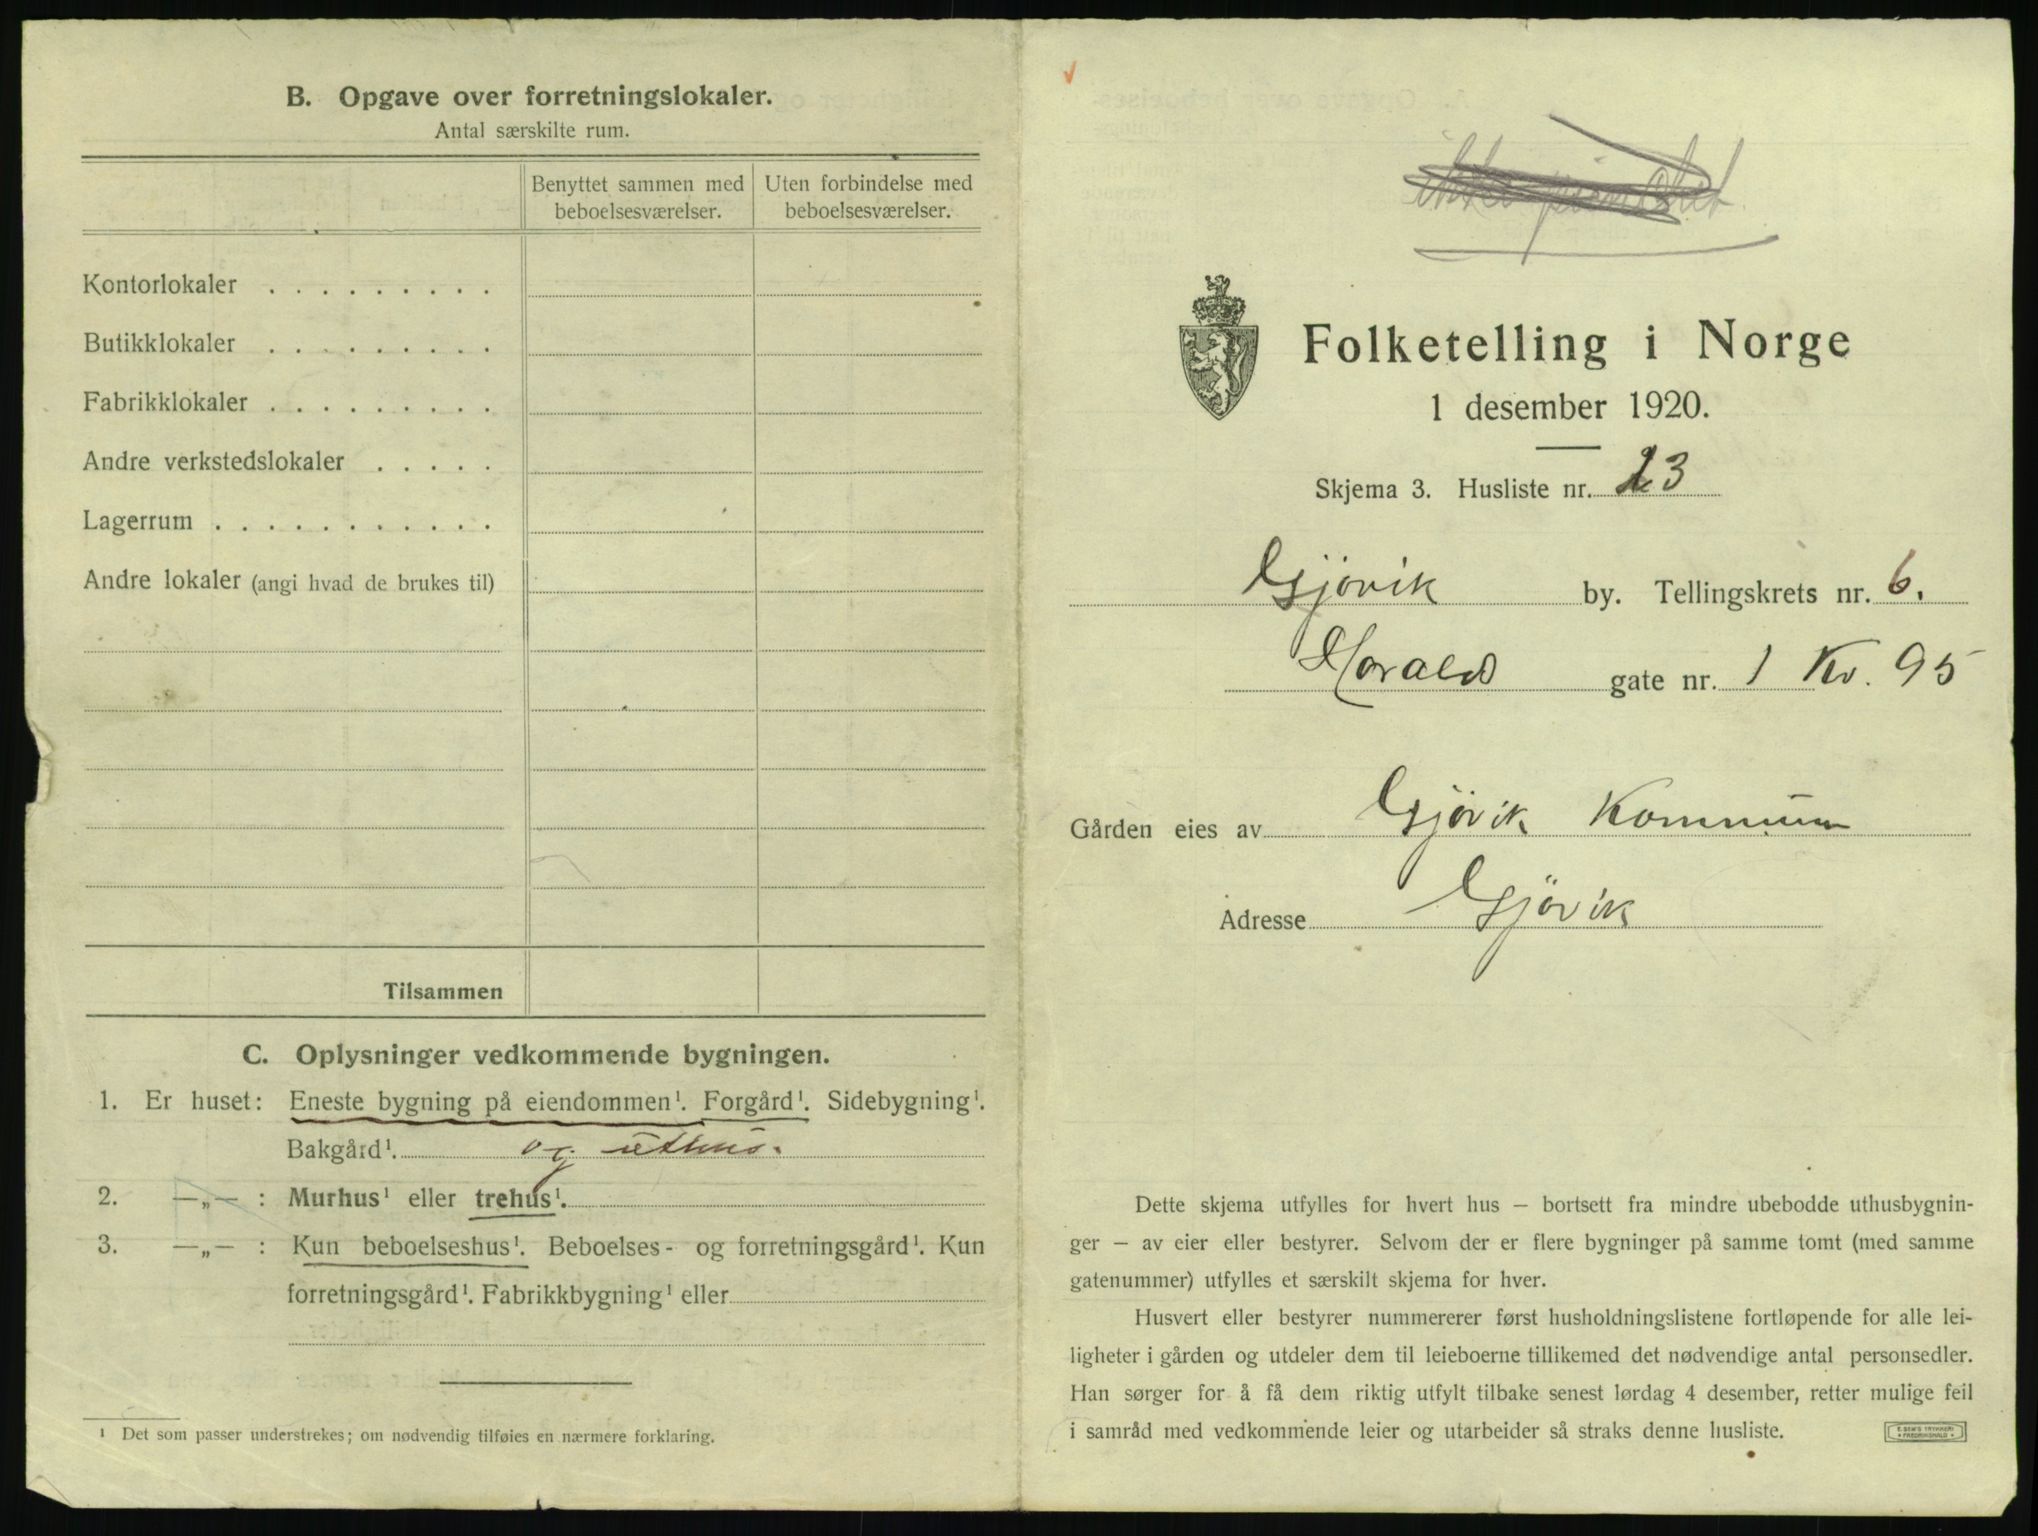 B. Opgave over forretningslokaler.
Antal særskilte rum.
Benyttet sammen med beboelsesværelser.
Uten forbindelse med beboelsesværelser.
Kontorlokaler . . . . . . . . .
Butikklokaler . . . . . . . . .
Fabrikklokaler . . . . . . . . .
Andre verkstedslokaler . . . . .
Lagerrum . . . . . . . . . . .
Andre lokaler (angi hvad de brukes til)
Tilsammen
C. Oplysninger vedkommende bygningen.
1. Er huset: Eneste bygning på eiendommen¹. Forgård¹. Sidebygning¹.
Bakgård¹. og uthus.
2. —„— : Murhus¹ eller trehus¹.
3. —„— : Kun beboelseshus¹. Beboelses- og forretningsgård¹. Kun
forretningsgård¹. Fabrikkbygning¹ eller
¹ Det som passer understrekes; om nødvendig tilføies en nærmere forklaring.
Folketelling i Norge
1 desember 1920.
Skjema 3. Husliste nr. 23
Gjövik by. Tellingskrets nr. 6.
Haralds gate nr. 1 Kv. 95
Gården eies av Gjövik Kommune
Adresse Gjövik
Dette skjema utfylles for hvert hus — bortsett fra mindre ubebodde uthusbygnin-
ger — av eier eller bestyrer. Selvom der er flere bygninger på samme tomt (med samme
gatenummer) utfylles et særskilt skjema for hver.
Husvert eller bestyrer nummererer først husholdningslistene fortløpende for alle lei-
ligheter i gården og utdeler dem til leieboerne tillikemed det nødvendige antal personsedler.
Han sørger for å få dem riktig utfylt tilbake senest lørdag 4 desember, retter mulige feil
i samråd med vedkommende leier og utarbeider så straks denne husliste.
E. SEM'S TRYKKERI
FREDRIKSHALD